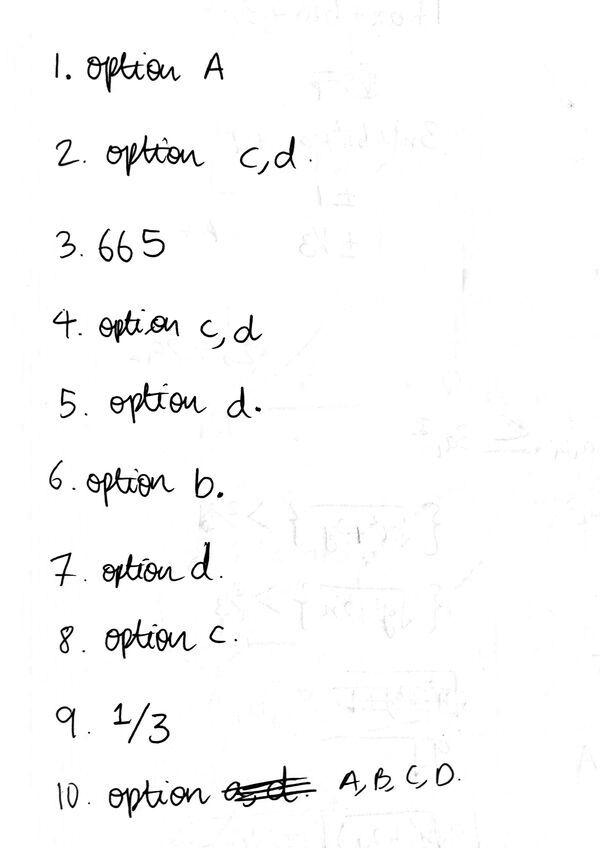 1. option A
2. option c,d.
3. 665
4. option c,d
5. option d.
6. option b.
7. option d.
8. option c.
9. 1/3
10. option A,B,C,D.